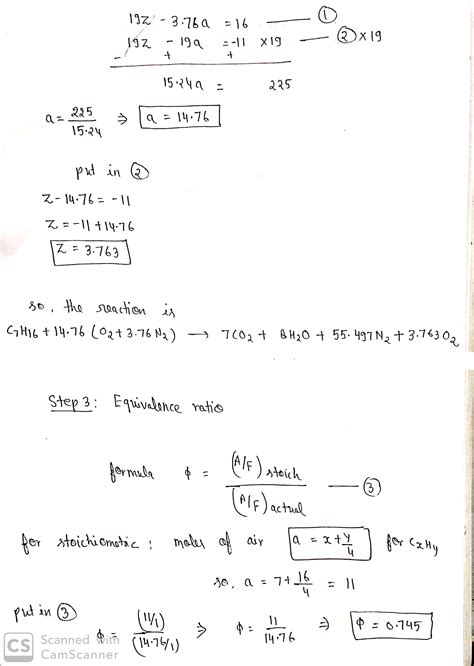 19z - 3.76a = 16 —— ①
19z - 19a = -11 x19 —— ② x19
- + +
15.24a = 225
a = 225/15.24 ⇒ a = 14.76
put in ②
z - 14.76 = -11
z = -11 + 14.76
z = 3.763
so, the reaction is
C7H16 + 14.76 (O2 + 3.76 N2) → 7CO2 + 8H2O + 55.497N2 + 3.763O2
Step 3: Equivalence ratio
formula ϕ = (A/F) stoich / (A/F) actual —— ③
for stoichiometic; moles of air a = x + y/4 for CxHy
so, a = 7 + 16/4 = 11
put in ③ ϕ = (11/1) / (14.76/1) ⇒ ϕ = 11/14.76 ⇒ ϕ = 0.745
CS Scanned with
CamScanner